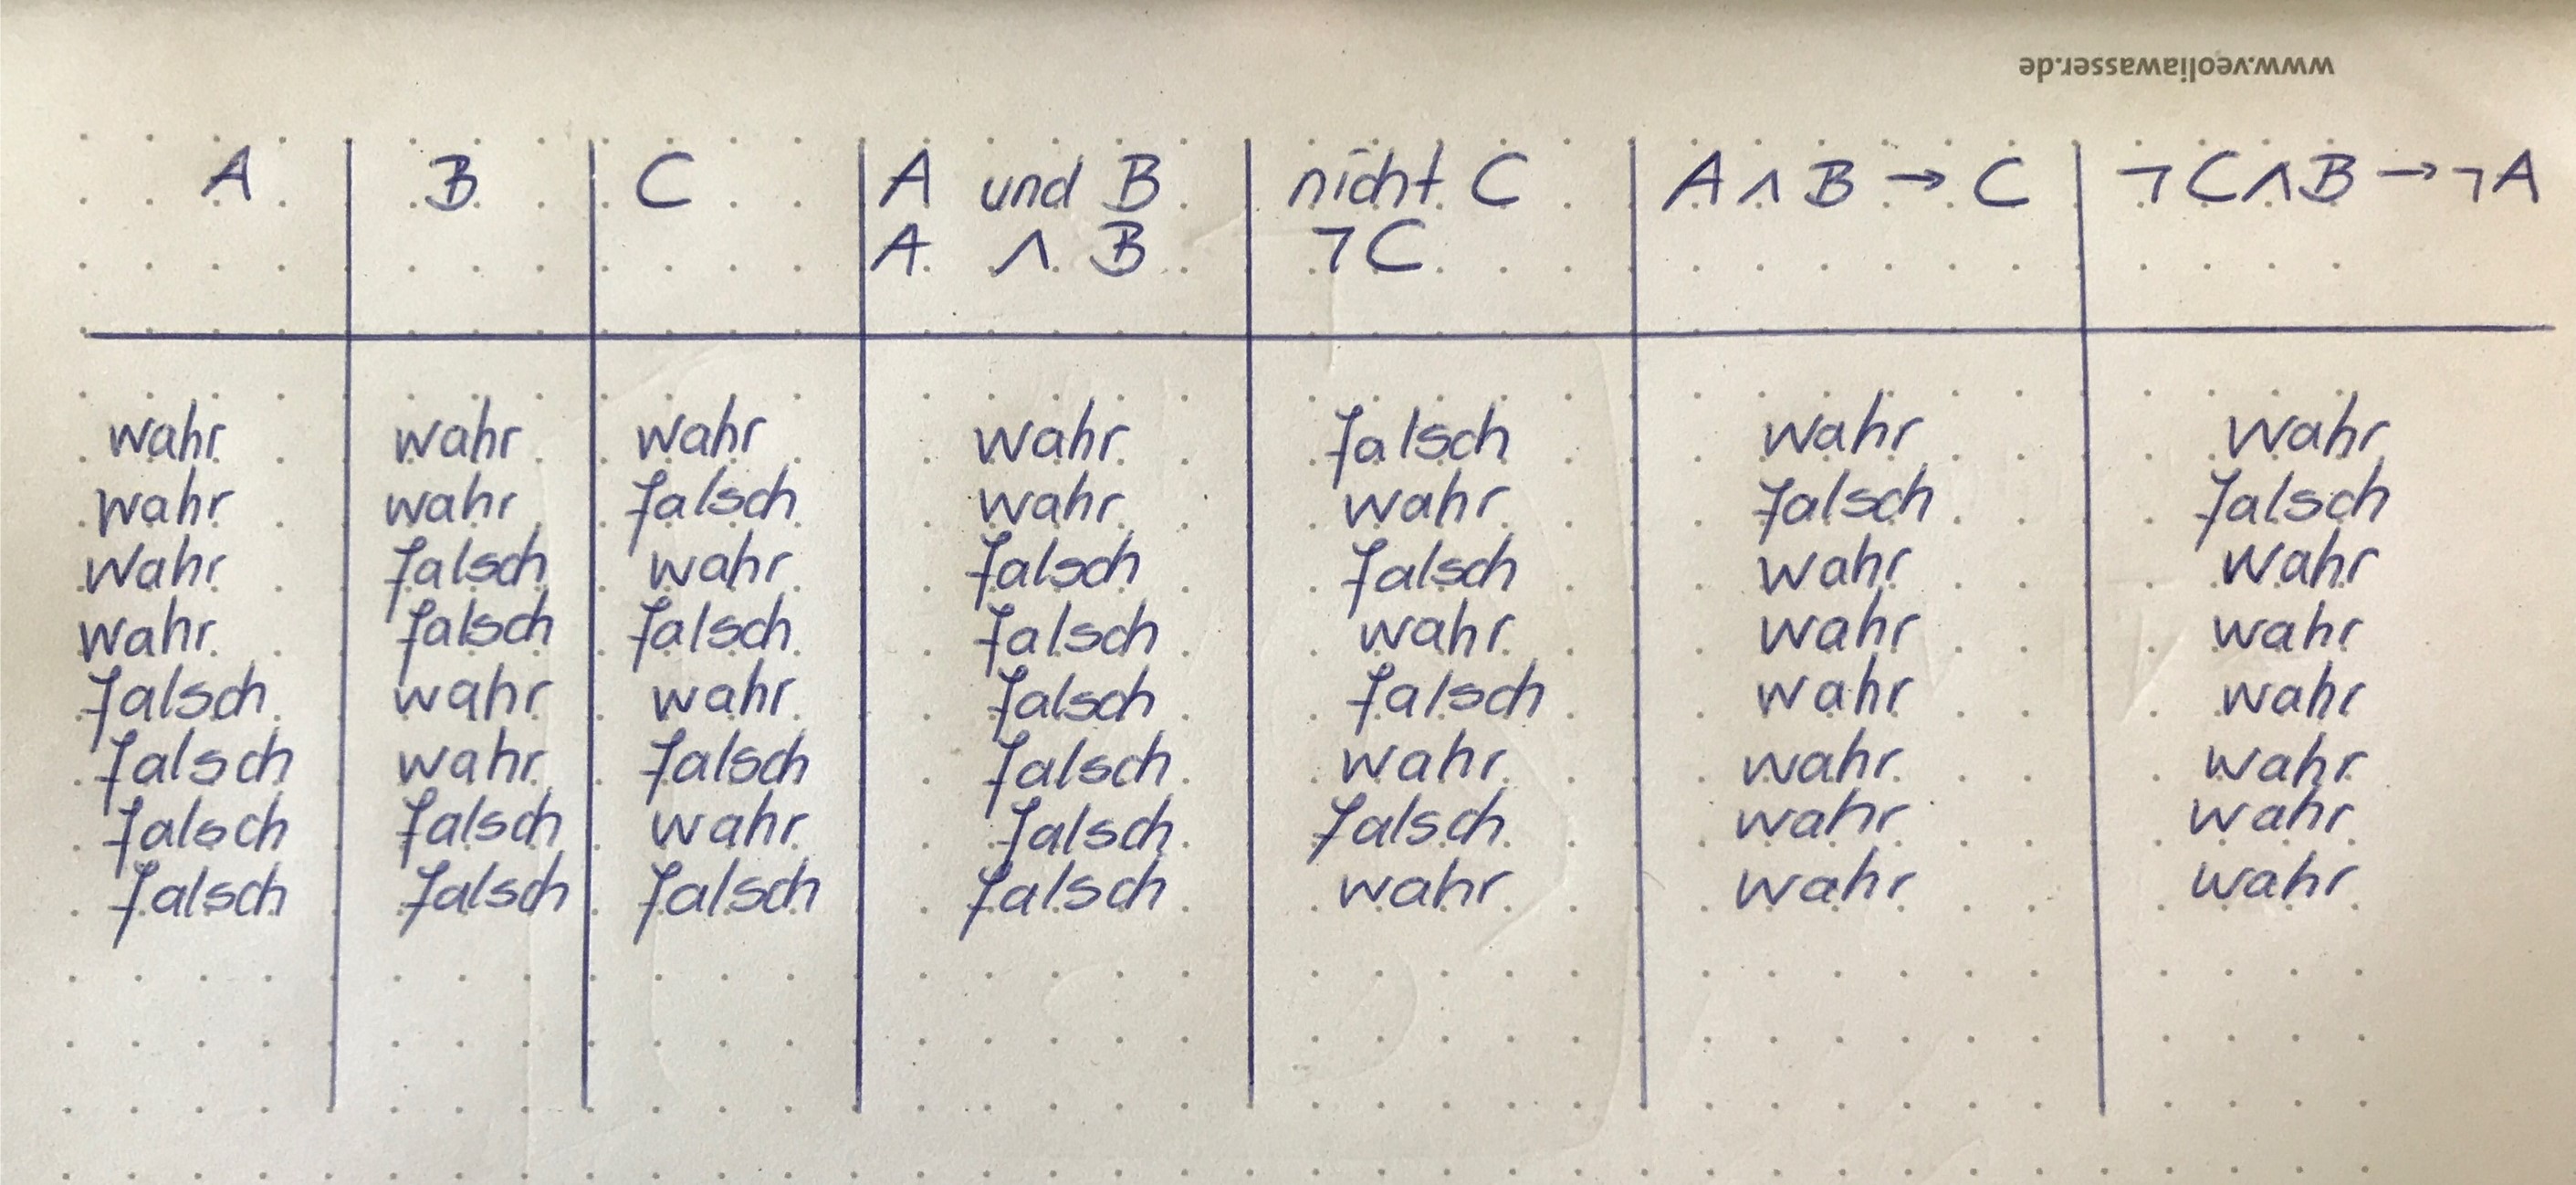 www.veoliawasser.de
A B C A und B nicht C A ∧ B → C ¬C∧B→¬A
A ∧ B ¬C
wahr wahr wahr wahr falsch wahr wahr
wahr wahr falsch wahr wahr falsch falsch
wahr falsch wahr falsch falsch wahr wahr
wahr falsch falsch falsch wahr wahr wahr
falsch wahr wahr falsch falsch wahr wahr
falsch wahr falsch falsch wahr wahr wahr
falsch falsch wahr falsch falsch wahr wahr
falsch falsch falsch falsch wahr wahr wahr